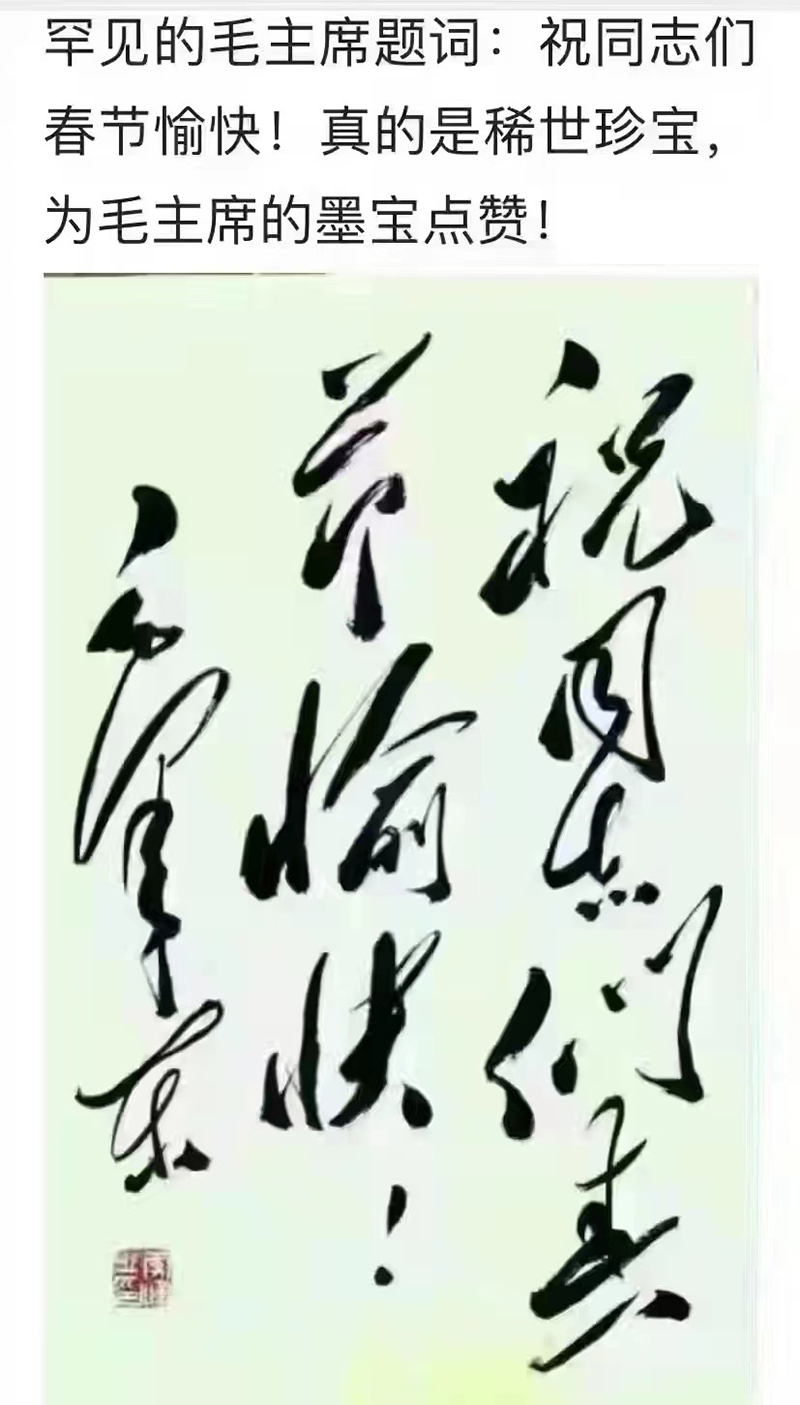 罕见的毛主席题词：祝同志们
春节愉快！真的是稀世珍宝，
为毛主席的墨宝点赞！
祝同志们春
节愉快！
毛泽东